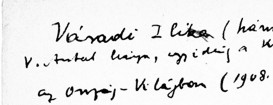 Váradi Ilika (
V. Antal lánya, egy ideig a
az Ország-Világban (1908.